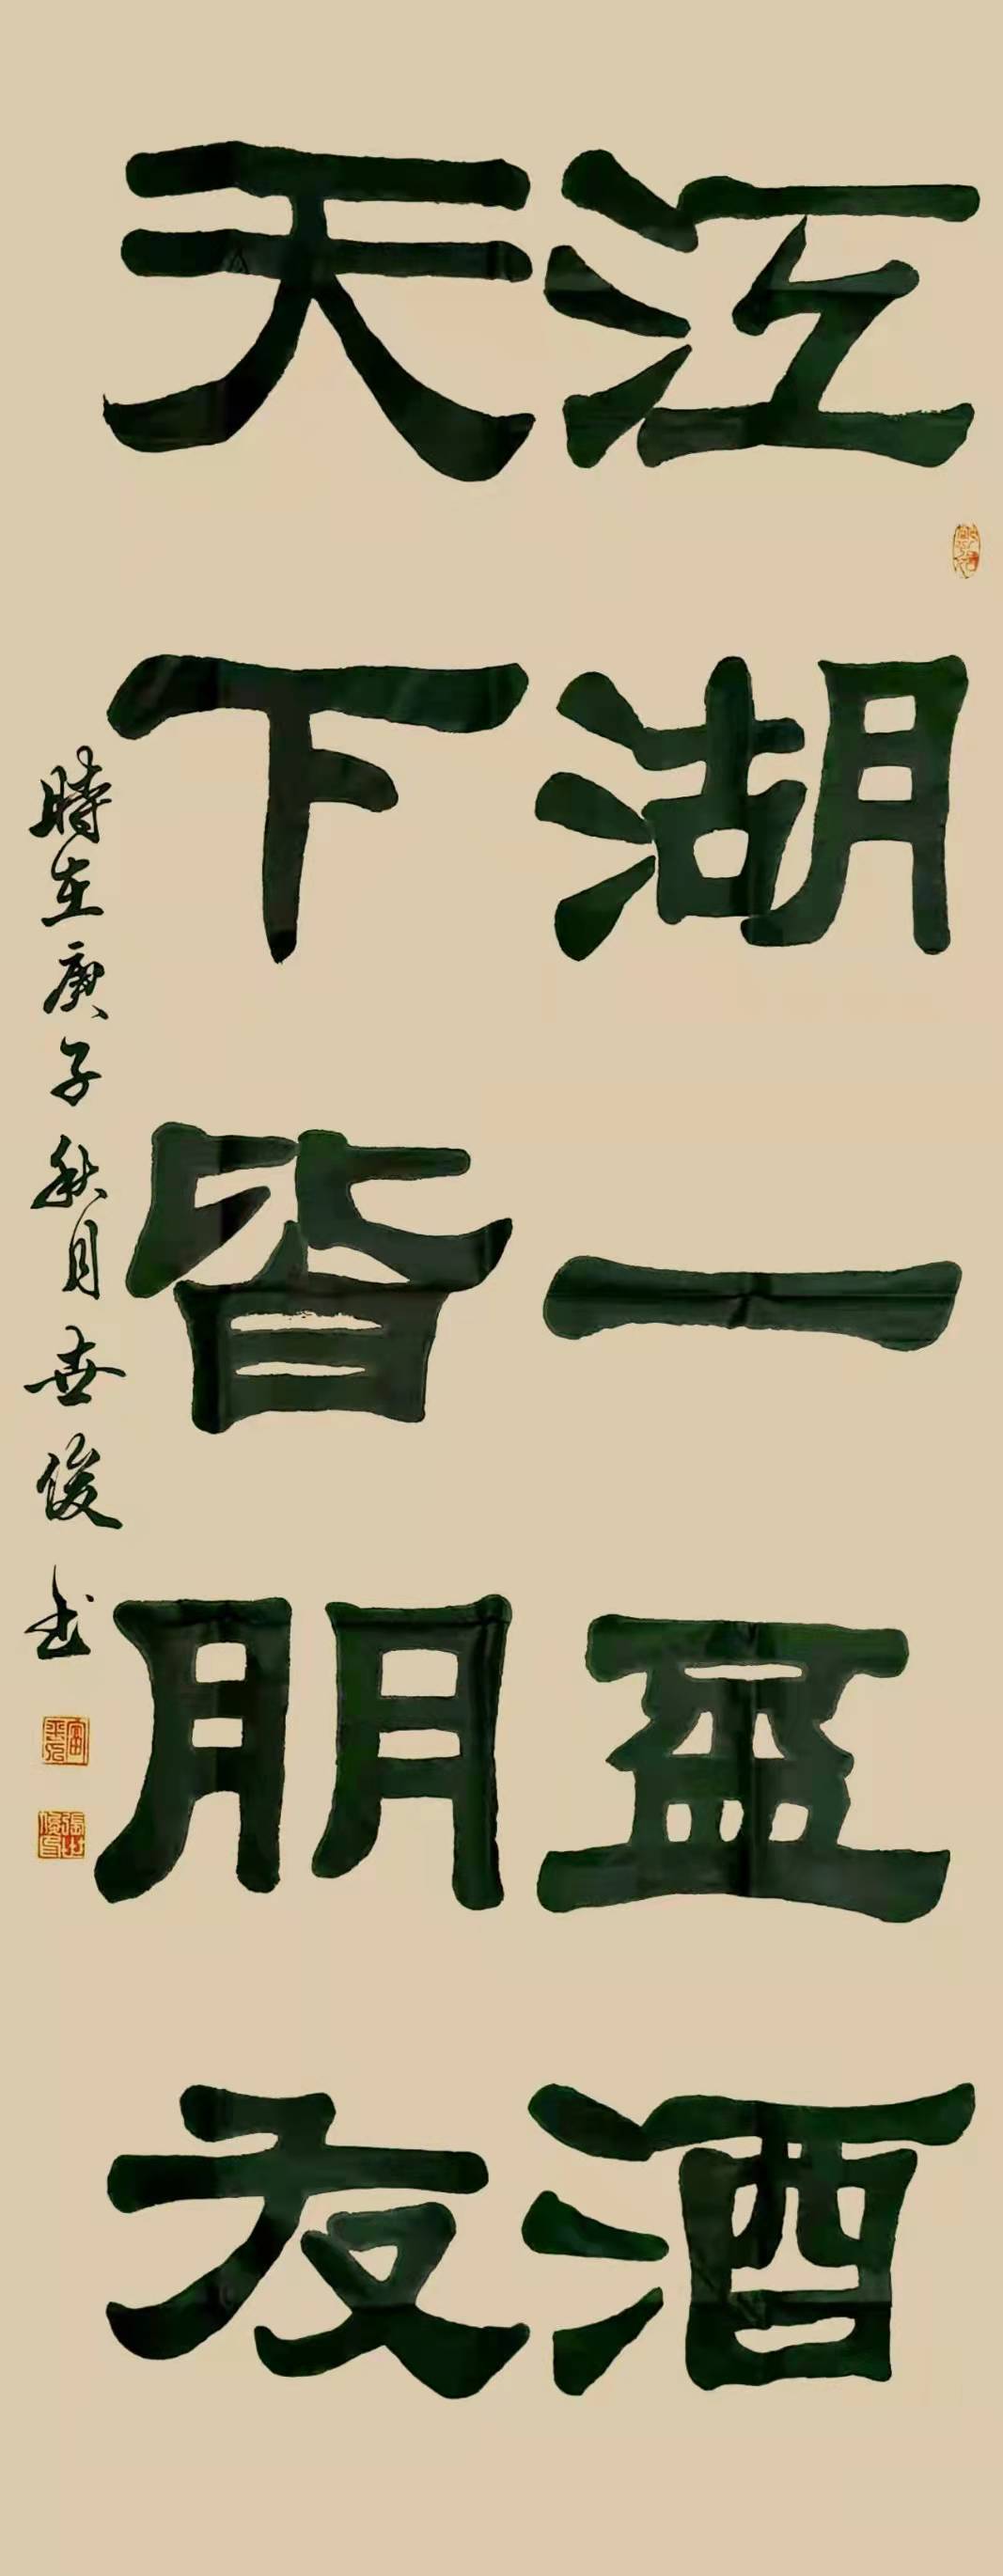 江湖一盃酒
天下皆朋友
時在庚子秋月世俊书